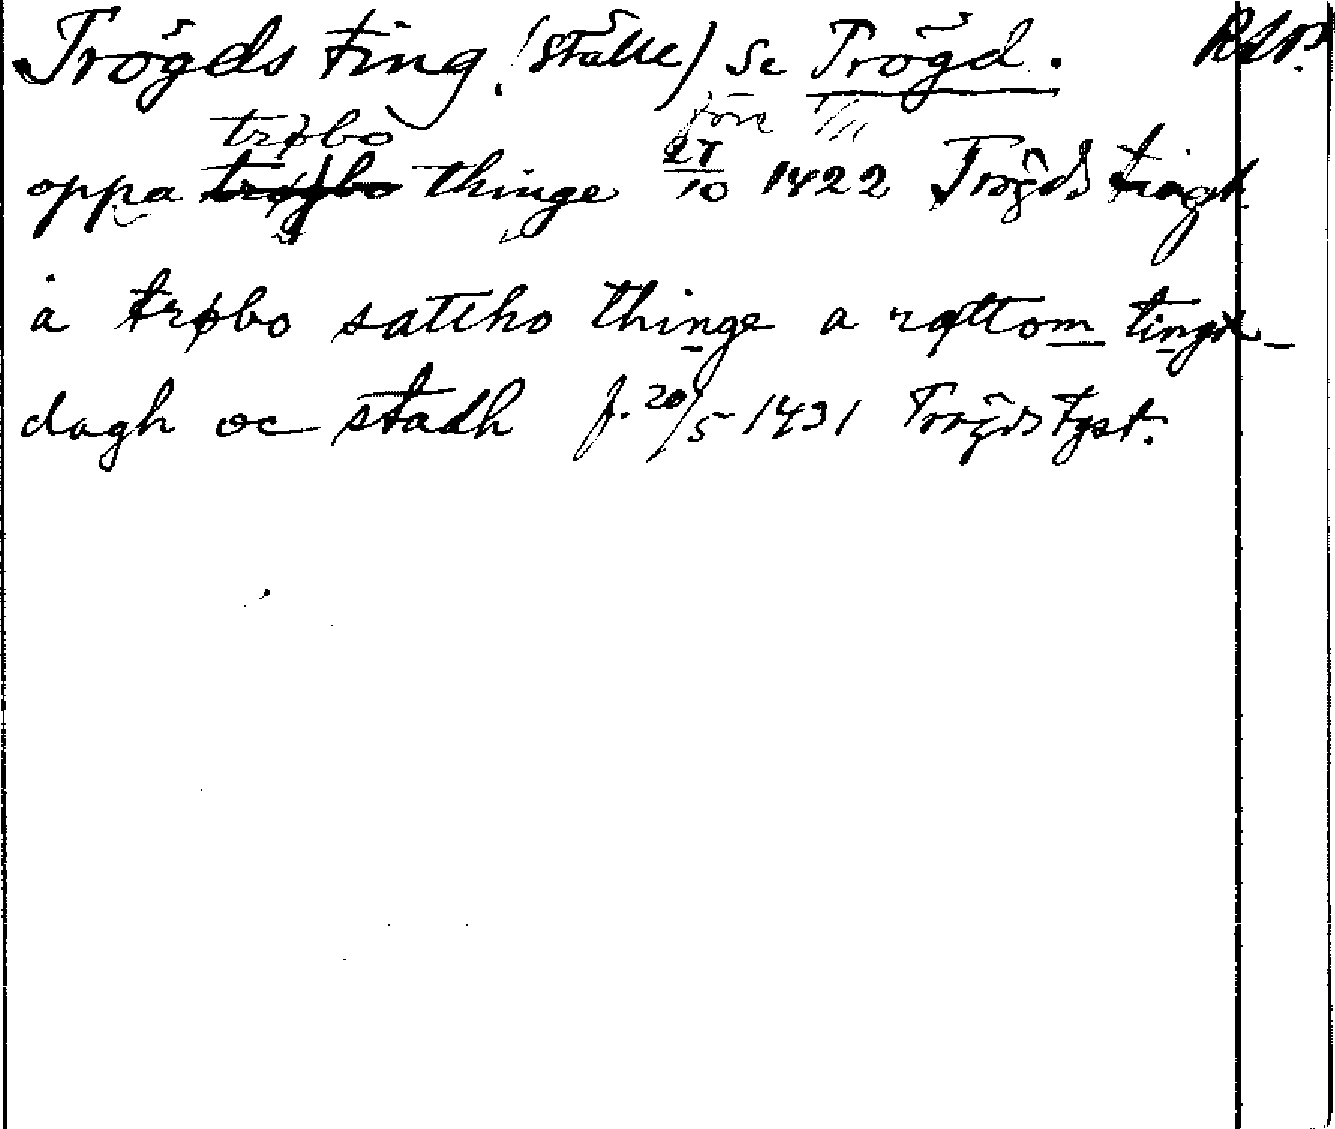 Trögds ting (ställe) se Trögd.
trøbo före
oppa trøgbo thinge 27/10 1422 Trögds tingh
a trøbo sattho thinge a rættom tingx-
dagh oc stadh f. 20/5 1431 Trögds tgst.